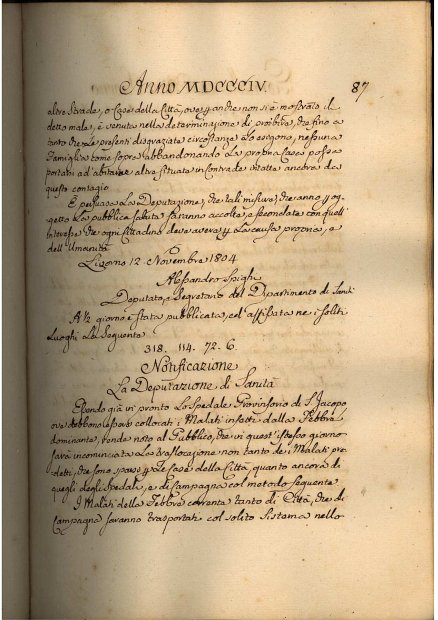 Anno MDCCCIV. 87
altre Strade, o Case della Città, ove per anche non si è mostrato il
detto male, è venuta nella determinazione di proibire, che fino a
tanto che le presenti disgraziate circostanze lo esigono, nessuna
Famiglia come sopra abbandonando la propria Casa possa
portarsi ad abitare altra situata in contrada intatta ancora da
questo contagio.
E persuasa la Deputazione, che tali misure, che anno per og-
getto la pubblica salute saranno accolte, e secondate con quell'
interesse, che ogni Cittadino deve avere per la causa propria, e
dell'Umanità
Livorno 12. Novembre 1804.
Alessandro Spighi
Deputato, e Segretario del Dipartimento di Sanità
A ½ giorno è stata pubblicata, ed affissata ne i soliti
Luoghi la seguente
318. 114. 72. 6.
Notificazione
La Deputazione di Sanità
Essendo già in pronto lo Spedale Provvisorio di S. Jacopo
ove debbono esser collocati i Malati infetti dalla Febbre
dominante, rende noto al Pubblico, che in quest'istesso giorno
sarà incominciata la traslocazione non tanto de i Malati pre-
detti, che sono sparsi per le case della Città, quanto ancora di
quegli degli Spedali, e di Campagna col metodo seguente
I Malati della Febbre corrente tanto di Città, che di
Campagna saranno trasportati col solito sistema nello